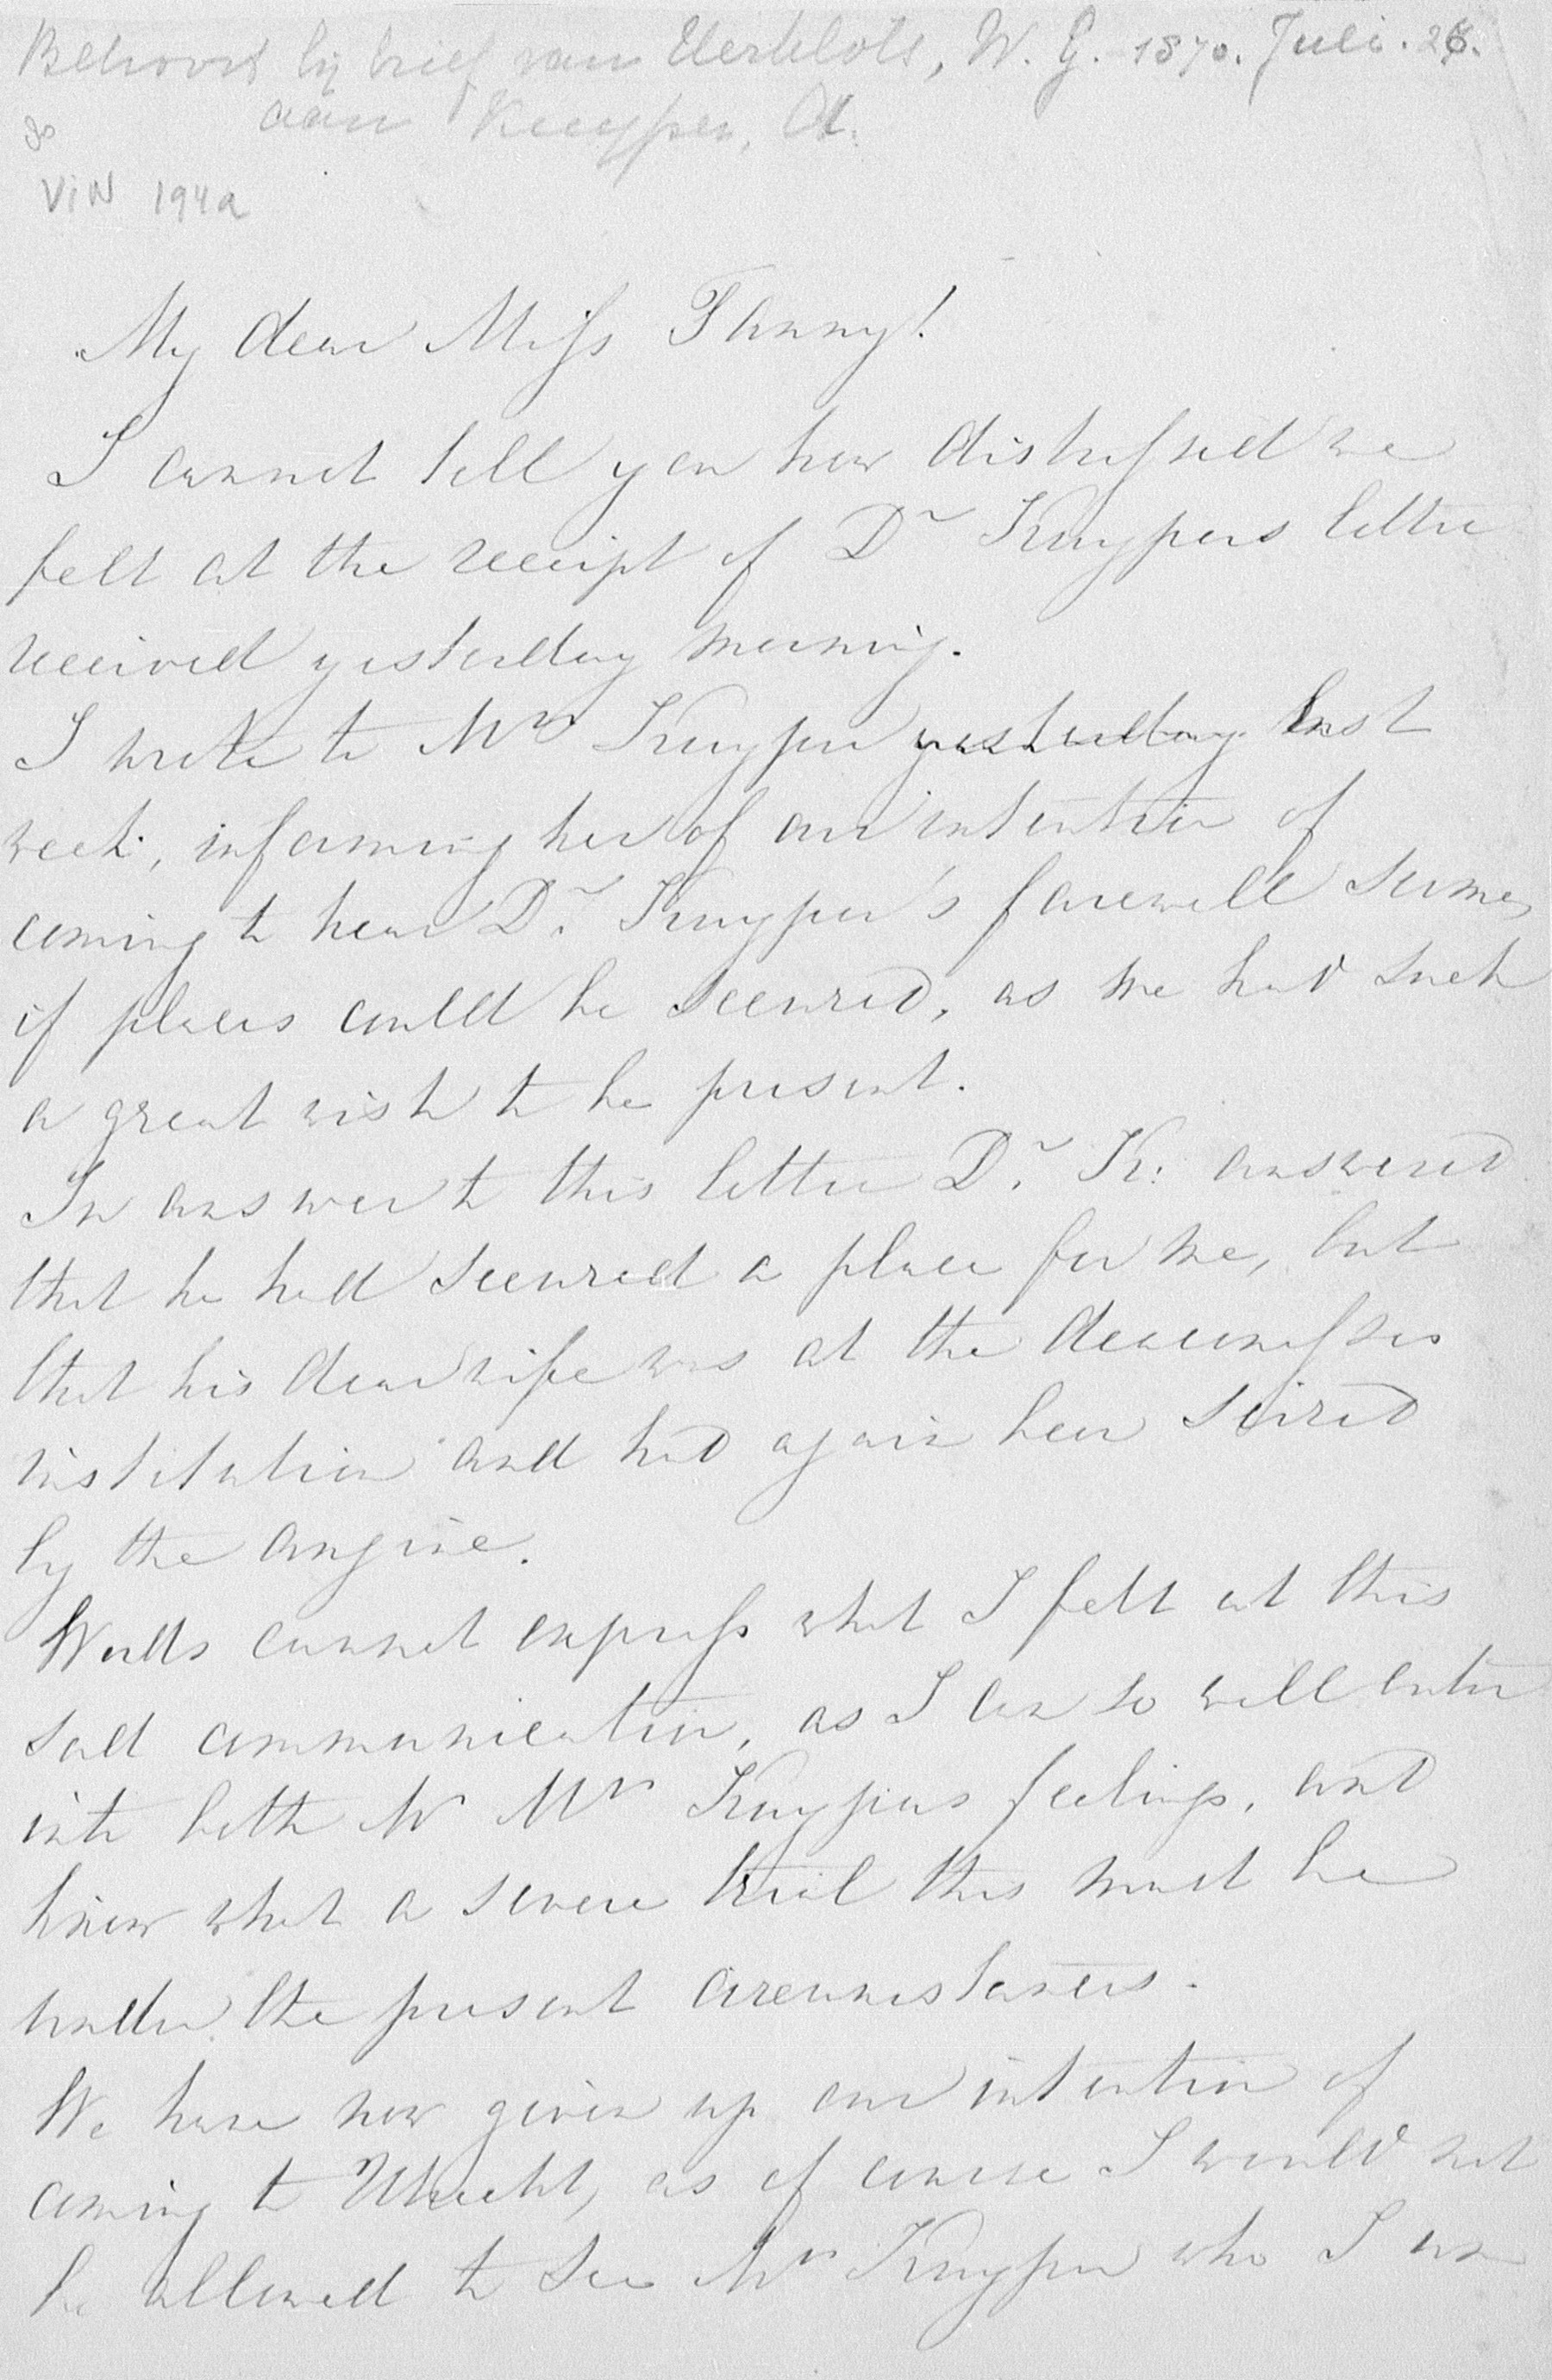 Behoort bij brief van Herklots, W. G. 1870. Juli. 26.
aan Kuyper, A.
VIN 194a
My dear Miss Fanny!
I cannot tell you how distressed we
felt at the receipt of Dr Kuypers letter
received yesterday morning.
I wrote to Mrs Kuyper yesterday last
week, informing her of our intention of
coming to hear Dr. Kuyper's farewell sermon
if places could be secured, as we had such
a great wish to be present.
In answer to this letter Dr. K: answered
that he had secured a place for me, but
that his dear wife was at the deaconesses
institution and had again been seized
by the angine.
Words cannot express what I felt at this
sad communication, as I can so well enter
into both Mr Mrs Kuypers feelings, and
know what a severe trial this must be
under the present circumstances.
We have now given up our intention of
coming to Utrecht, as of course I would not
be allowed to see Mrs Kuyper who I am